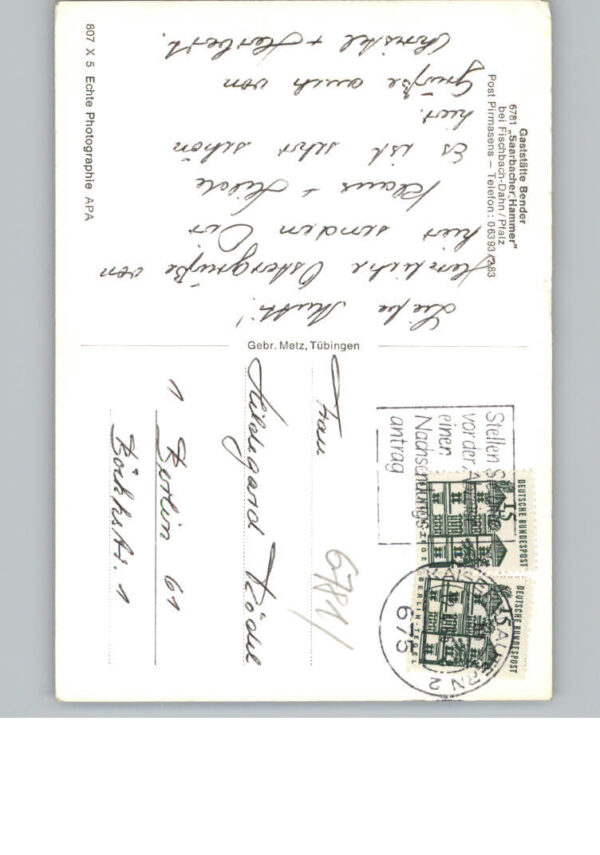 Gaststätte Bender
6781 „Saarbacher Hammer"
bei Fischbach-Dahn/Pfalz
Post Pirmasens – Telefon: 06393/283
Liebe Mutti!
Herzliche Ostergrüße von
hier senden Dir
Klaus + Heide
Es ist sehr schön
hier.
Grüße auch von
Christel + Herbert.
807 X 5 Echte Photographie APA
Gebr. Metz, Tübingen
Stellen Sie
vor der
einen
Nachsendungs
antrag
15
DEUTSCHE BUNDESPOST
BERLIN TEGEL
15
DEUTSCHE BUNDESPOST
675
KAISERSLAUTERN 2
6781/
Frau
Hildegard Rödel
1 Berlin 61
Böckhstr. 1